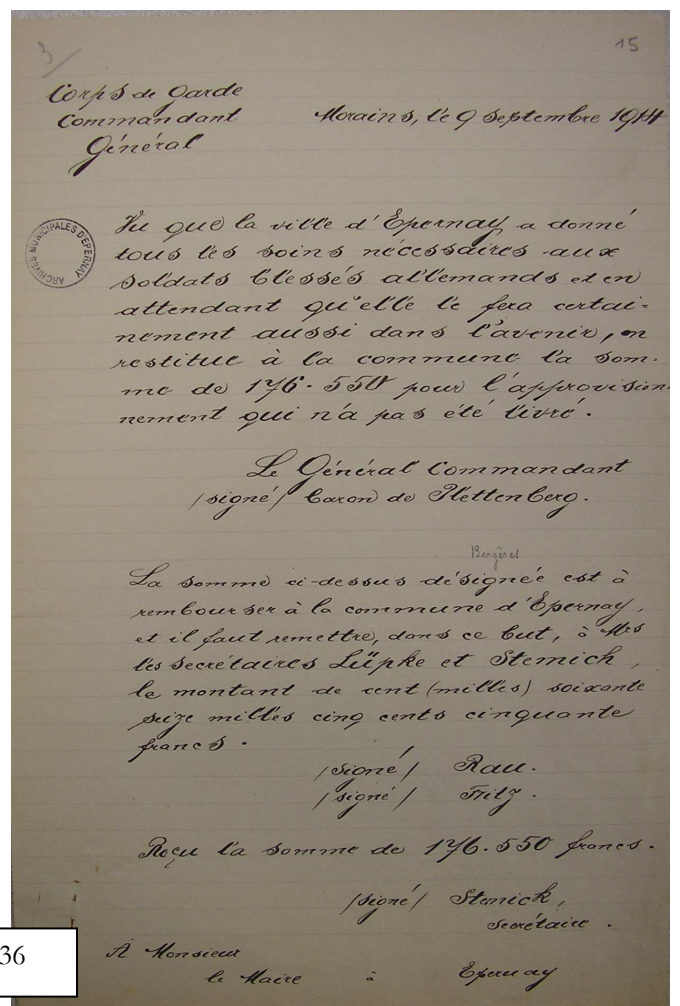 3/
15
Corps de Garde
Commandant
Général
Morains, le 9 Septembre 1914
ARCHIVES MUNICIPALES D'EPERNAY
Vu que la ville d'Epernay a donné
tous les soins nécessaires aux
soldats blessés allemands et en
attendant qu'elle le fera certai-
nement aussi dans l'avenir, on
restitue à la commune la som-
me de 176.550 pour l'approvision-
nement qui n'a pas été livré.
Le Général Commandant
/signé/ Baron de Plettenberg.
Bergères
La somme ci-dessus désignée est à
rembourser à la commune d'Epernay,
et il faut remettre, dans ce but, à Mrs
les secrétaires Lüpke et Stemich,
le montant de cent (milles) soixante
seize milles cinq cents cinquante
francs.
/signé/ Rau.
/signé/ Fritz.
Reçu la somme de 176.550 francs.
/signé/ Stemich,
secrétaire.
A Monsieur
le Maire à Epernay
36